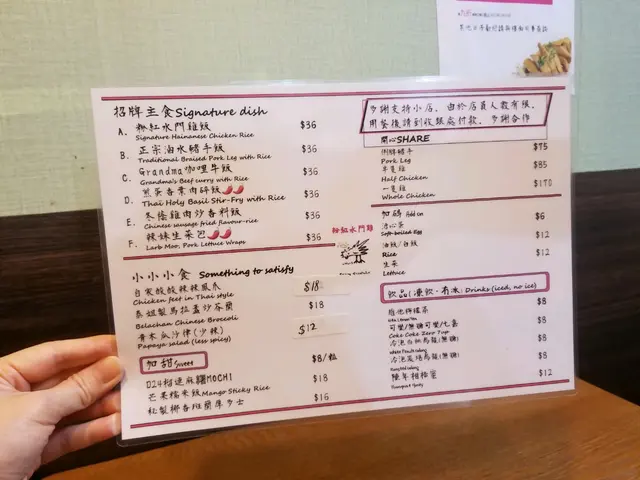 招牌主食Signature dish
A. 粉紅水門雞飯 $36
Signature Hainanese Chicken Rice
B. 正宗滷水豬手飯 $36
Traditional Braised Pork Leg with Rice
C. Grandma咖哩牛飯 $36
Grandma's Beef curry with Rice
D. 煎蛋香葉肉碎飯 $36
Thai Holy Basil Stir-Fry with Rice
E. 冬蔭雞肉炒香料飯 $36
Chinese sausage fried flavour-rice
F. 辣妹生菜包 $36
Larb Moo, Pork Lettuce Wraps
小小小食 Something to satisfy
自家酸酸辣辣鳳爪 $18
Chicken feet in Thai style
泰姐製馬拉盞炒芥蘭 $18
Belachan Chinese Broccoli
青木瓜沙律(少辣) $12
Papaya salad (less spicy)
加甜 Sweet
D24榴槤麻糬MOCHI $8/粒
芒果糯米飯Mango Sticky Rice $18
私製椰香班蘭厚多士 $16
粉紅水門雞
多謝支持小店，由於店員人數有限，
用餐後請到收銀處付款，多謝合作
開心SHARE
例牌豬手 $75
Pork Leg
半隻雞 $85
Half Chicken
一隻雞 $170
Whole Chicken
加餸 Add on
溏心蛋 $6
Soft-boiled Egg
油飯/白飯 $12
Rice
生菜 $12
Lettuce
飲品(凍飲，冇冰) Drinks (iced, no ice)
$8
可樂/無糖可樂/七喜 $8
Coke Coke Zero 7up
$8
$8
$12